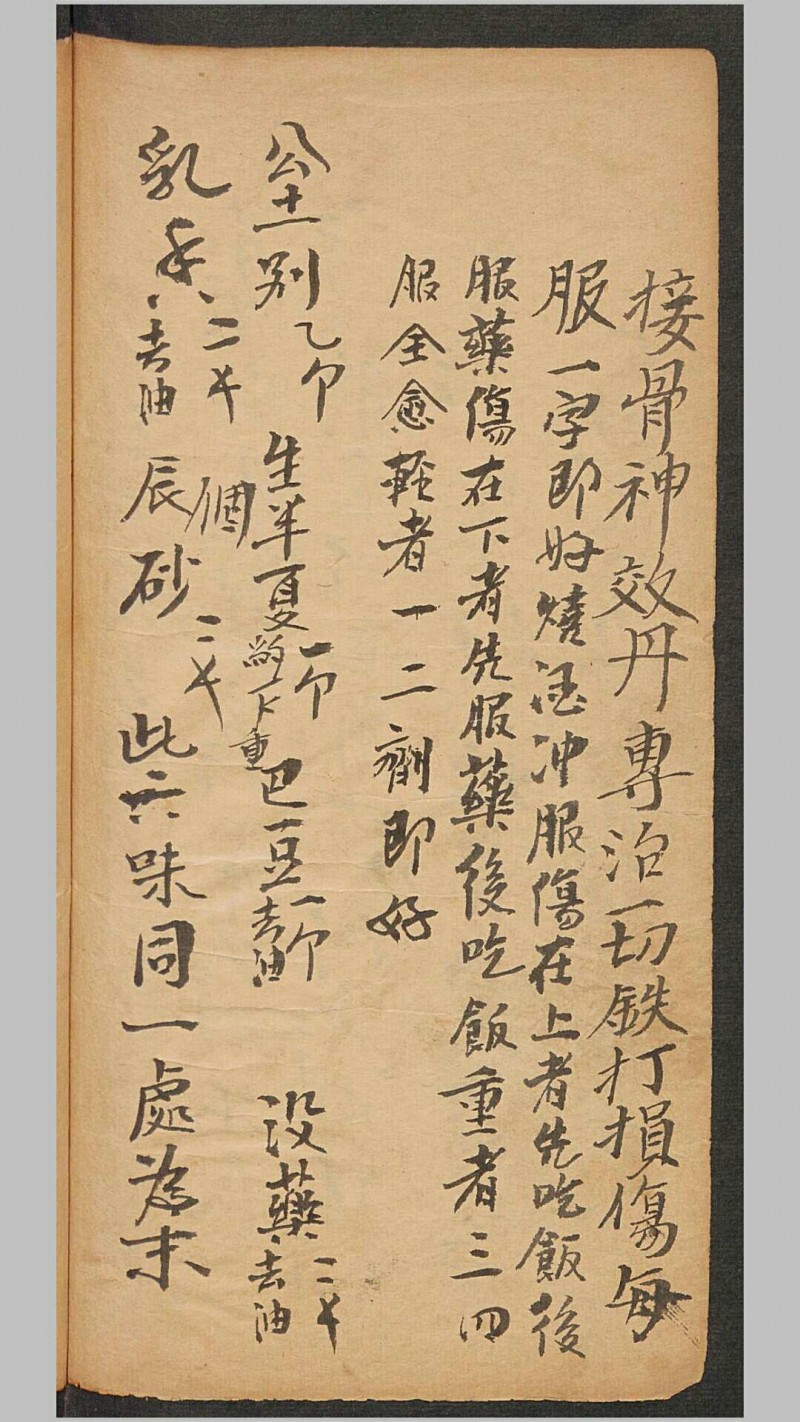 接骨神效丹專治一切鉄打損傷每
服一字即好燒酒冲服傷在上者先吃飯後
服藥傷在下者先服藥後吃飯重者三四
服全愈輕者一二劑即好
公土别乙个 生半夏一个 下重 巴豆一个去油 没藥二个去油
乳香二个去油 個辰砂二个 此六味同一處為末